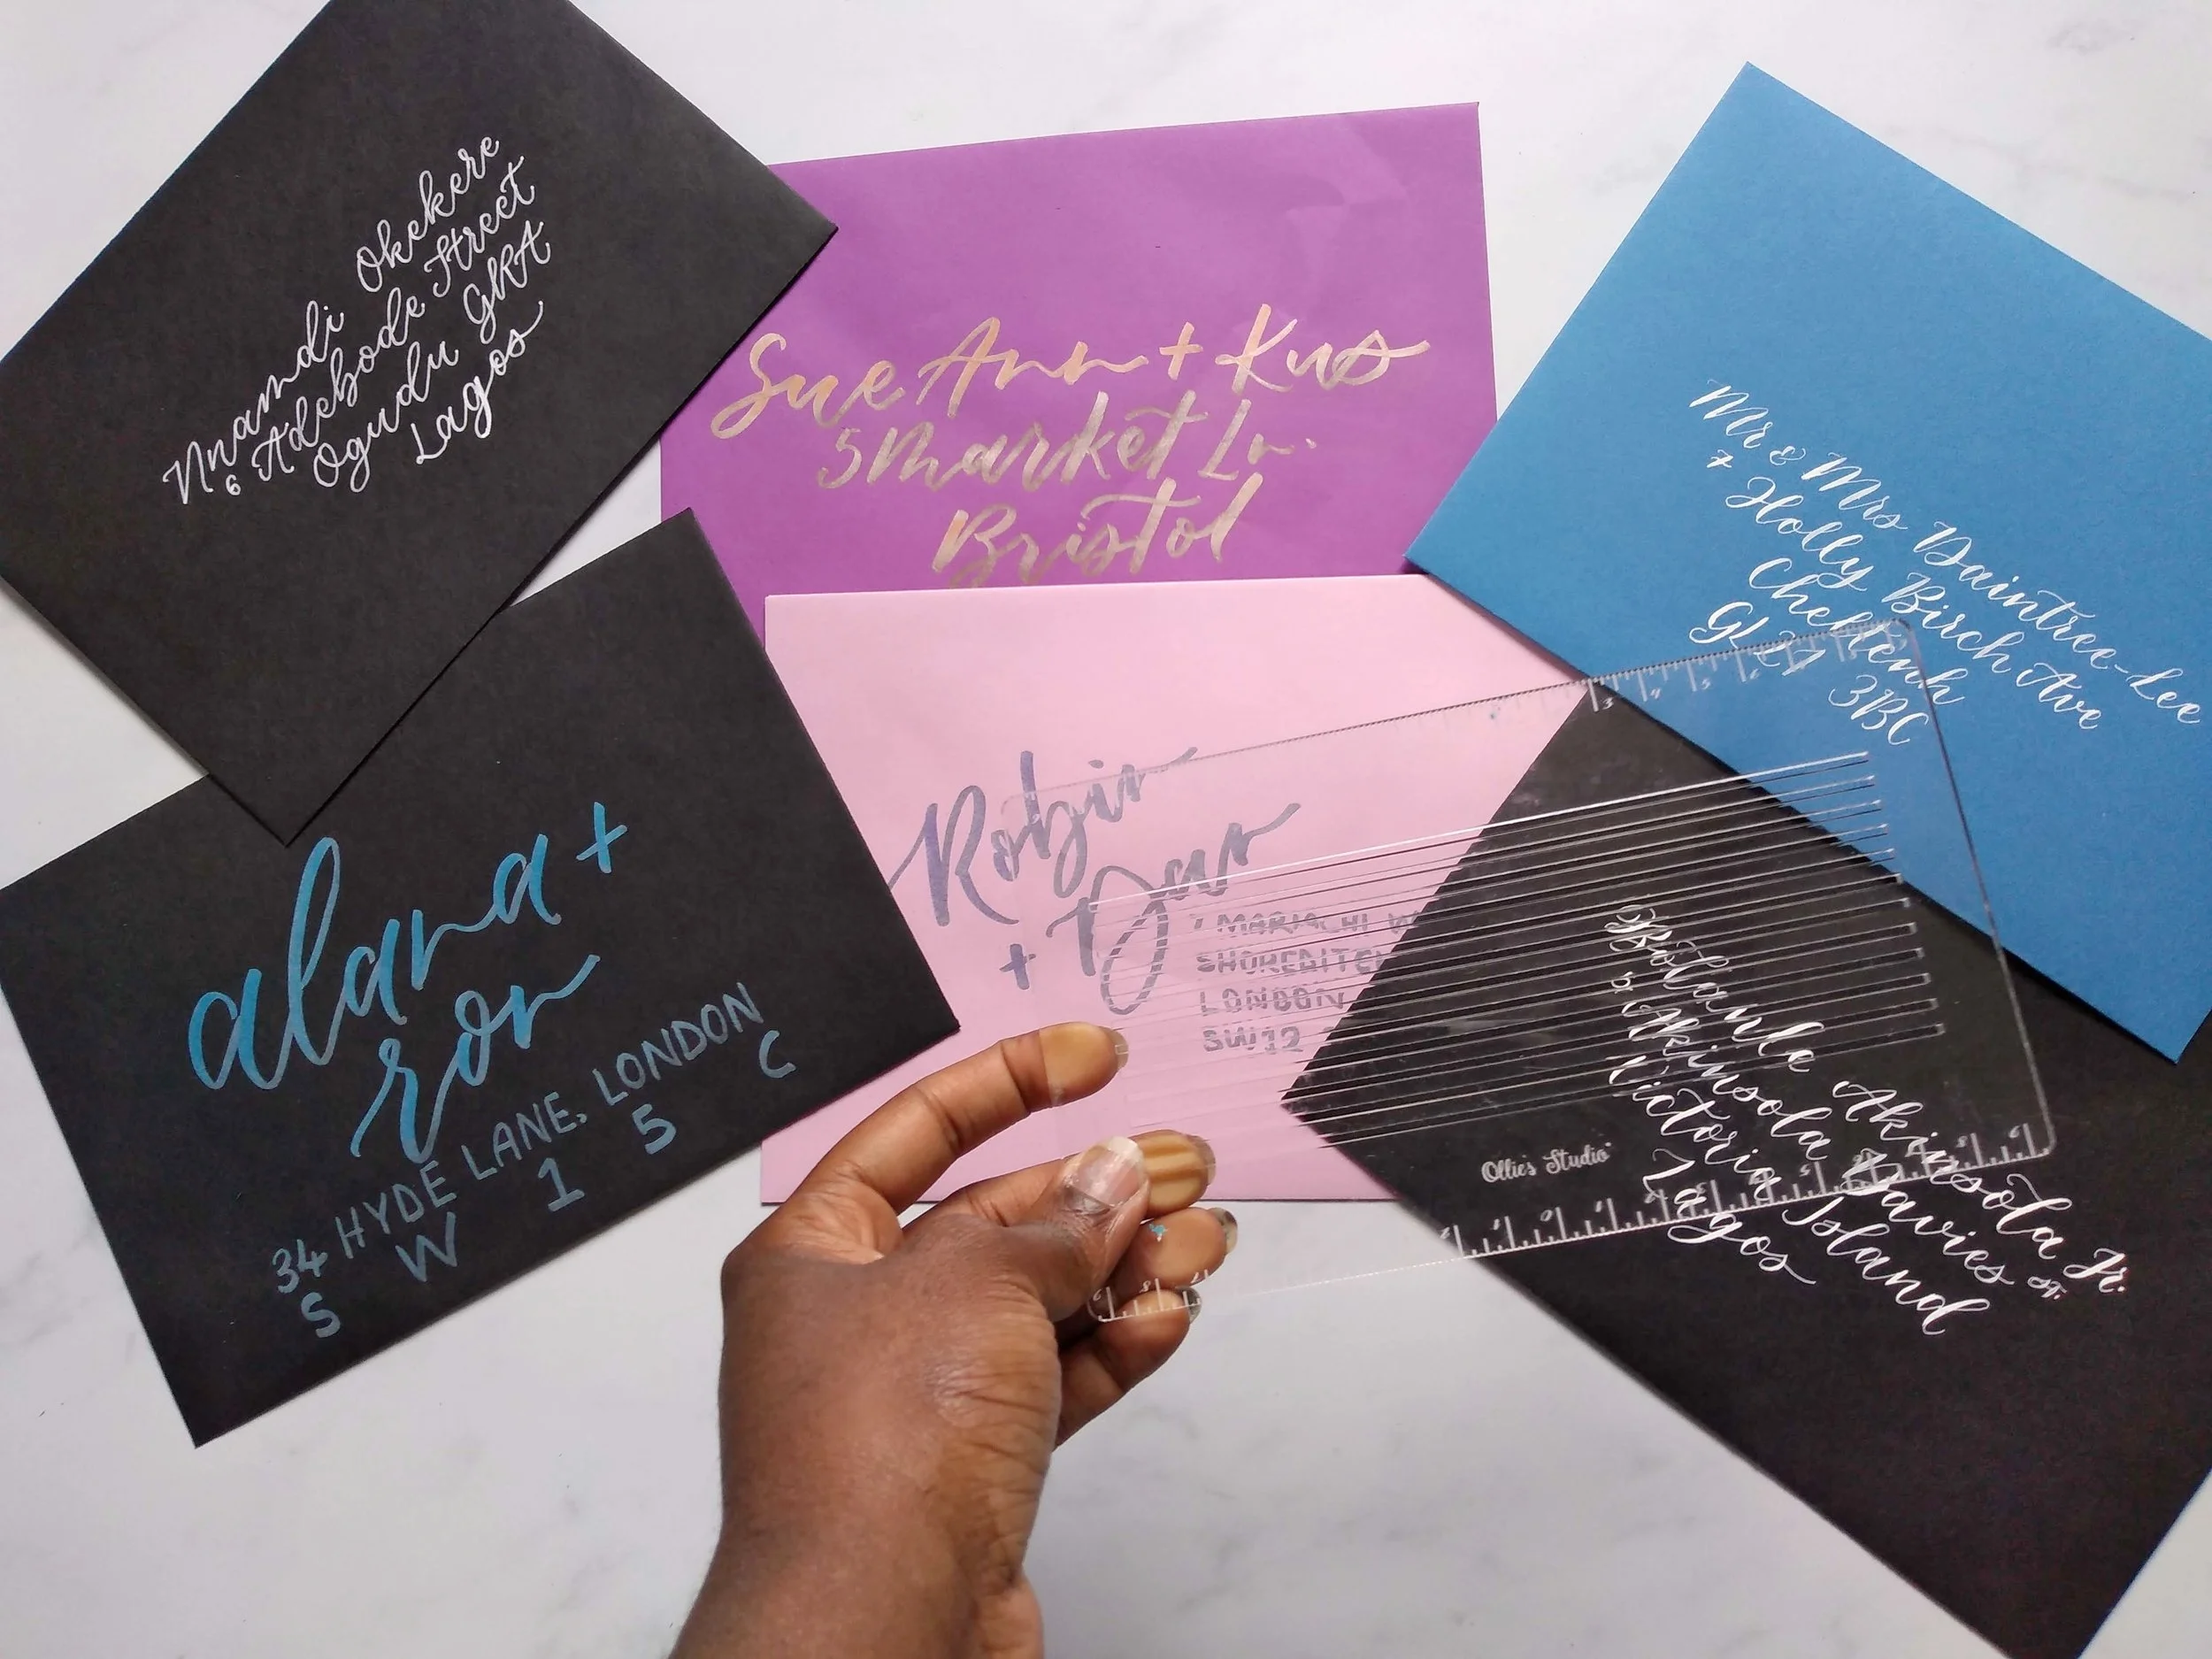 Nnamdi Okekere
6 Adebode Street
Ogudu GRA
Lagos
Sue Ann + Kus
5 Market Ln.
Bristol
Mr & Mrs Daintree-Lee
7 Holly Birch Ave
GL27 3BC
alana +
ron
34 HYDE LANE, LONDON
S W 1 5 C
Robin
+ Dav
7 MARIACHI
SHOREDITCH
LONDON
SW12
Bolanle Akinsola Jr.
5 Akinsola Davies St.
Victoria Island
Lagos
Ollie's Studio